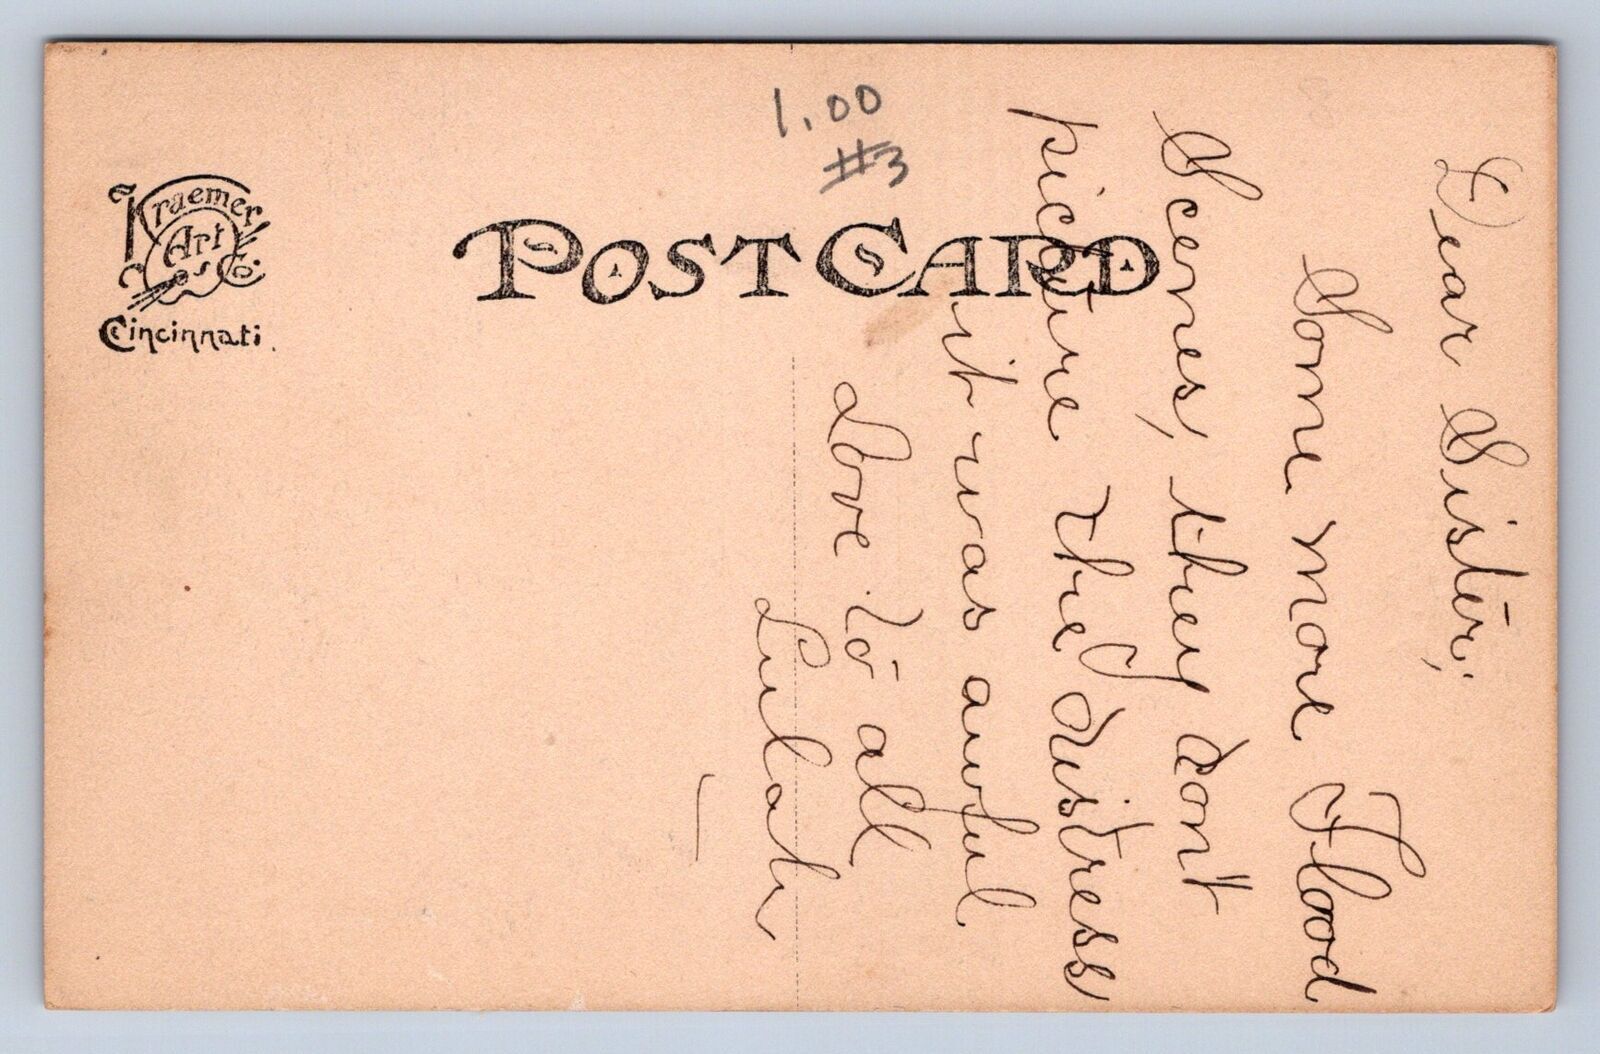 1.00
#3
Kraemer
Art
& Co.
Cincinnati.
POST CARD
Dear Sister;
Some more Flood
Scenes, they dont
picture the distress
it was awful
Love to all
Lulah